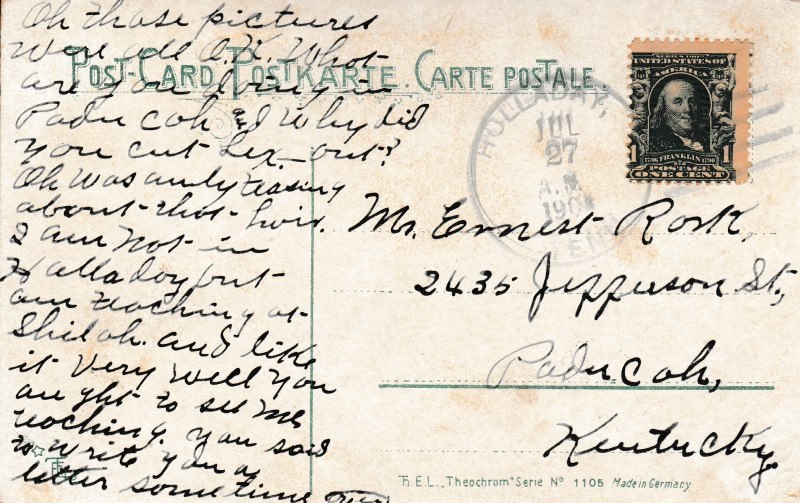 Oh those pictures
were all O.K. What
are you doing in
Paducah and Why did
you cut Lex- out?
Oh was only teasing
about that hair.
I am not in
Halladay but
am teaching at
Shiloh. and like
it very well You
aught to see me
teaching. you said
to write you a
letter sometime
POST-CARD POSTKARTE CARTE POSTALE
HOLLADAY,
JUL
27
A.M.
TENN
SERIES 1902
UNITED STATES OF
AMERICA
1 1
1706 FRANKLIN 1790
POSTAGE
ONE CENT
Mr. Ernest Rork,
2435 Jefferson St,
Paducah,
Kentucky
T.H.E.L. „Theochrom" Serie No 1105 Made in Germany